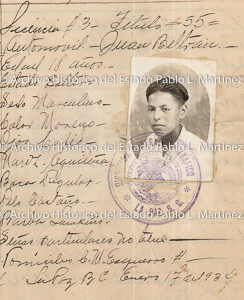 Licencia # 3 - Titulo # 55 =
Automovil - Juan Beltrán. -
Edad 18 años. -
Estado Soltero
Sexo Masculino
Color Moreno
Nariz Aguileña
Boca Regular
Pelo Castaño
Barba Lampiño
Señas Particulares No tiene
Domicilio C. M. Esquerro #
La Paz, B.C. Enero 17 de 1934
LA PAZ, B. C.
Archivo Histórico del Estado Pablo L. Martínez
Archivo Histórico del Estado Pablo L. Martínez
Archivo Histórico del Estado Pablo L. Martínez
Archivo Histórico del Estado Pablo L. Martínez